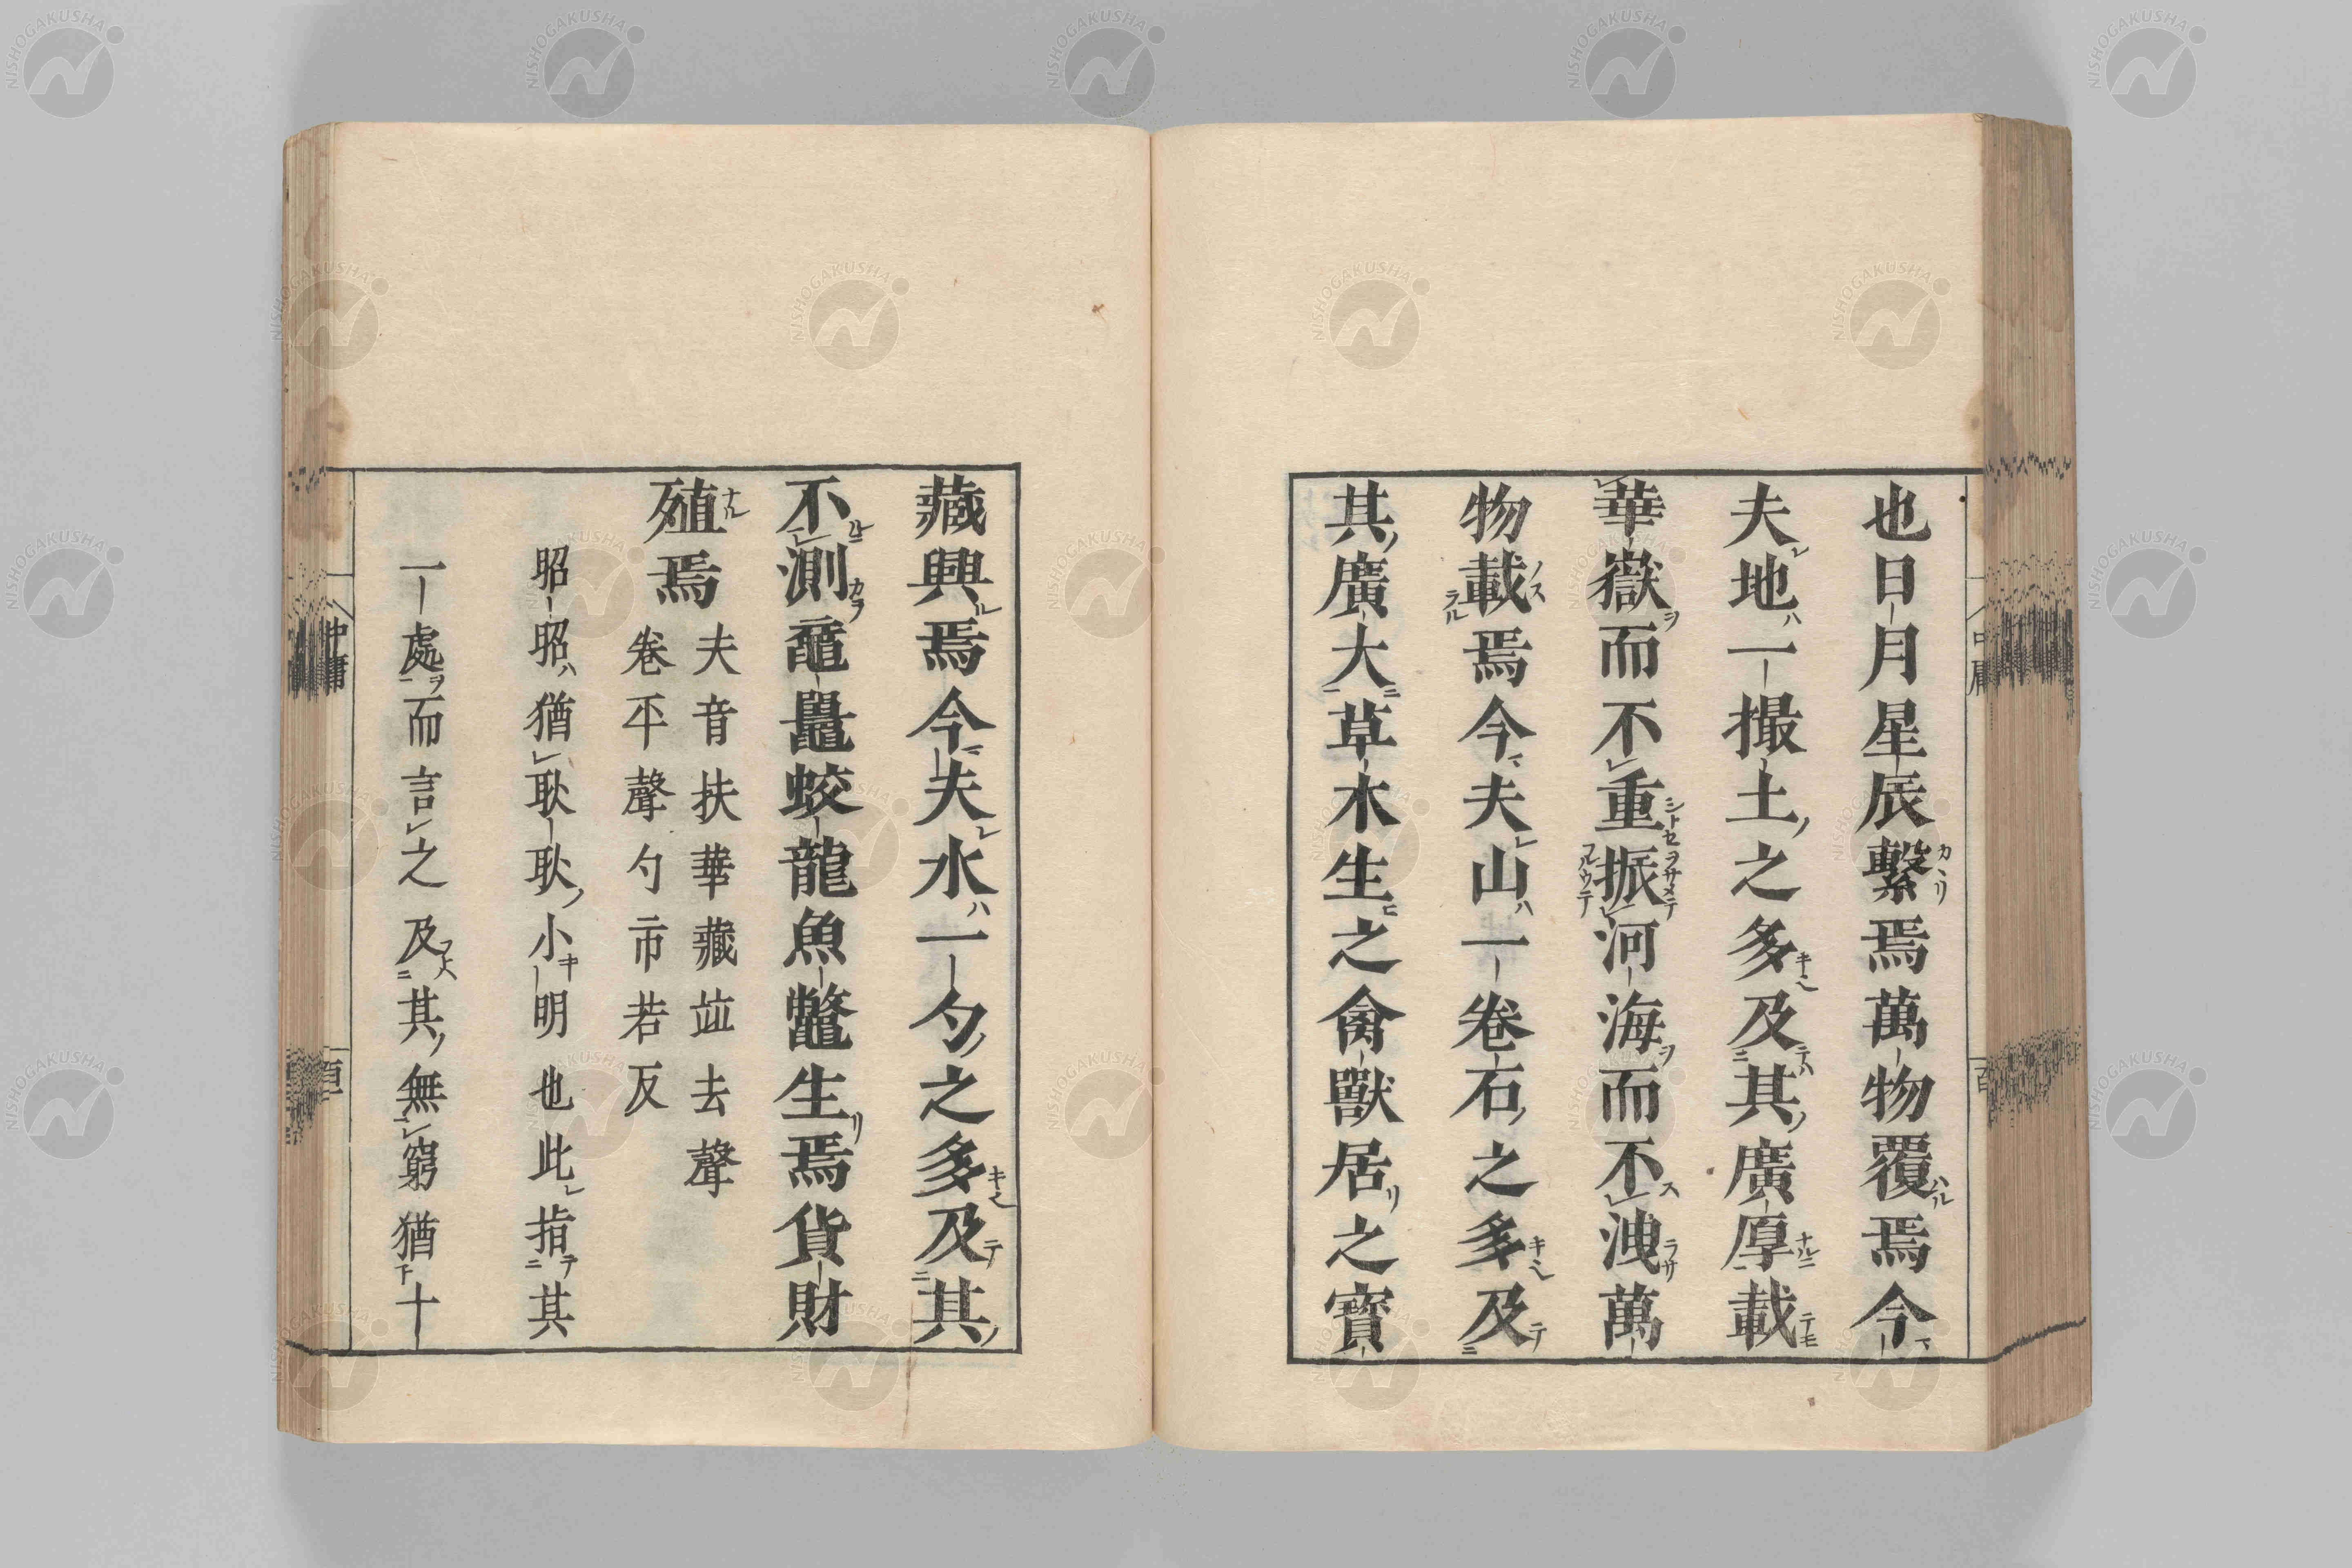 也日月星辰繫焉萬物覆焉今
夫地一撮土之多及其廣厚載
華嶽而不重振河海而不洩萬
物載焉今夫山一卷石之多及
其廣大草木生之禽獸居之寶
藏興焉今夫水一勺之多及其
不測黿鼉蛟龍魚鼈生焉貨財
殖焉
夫音扶華藏竝去聲
卷平聲勺市若反
昭昭猶耿耿小明也此指其
一處而言之及其無窮猶十
中庸
NISHOGAKUSHA